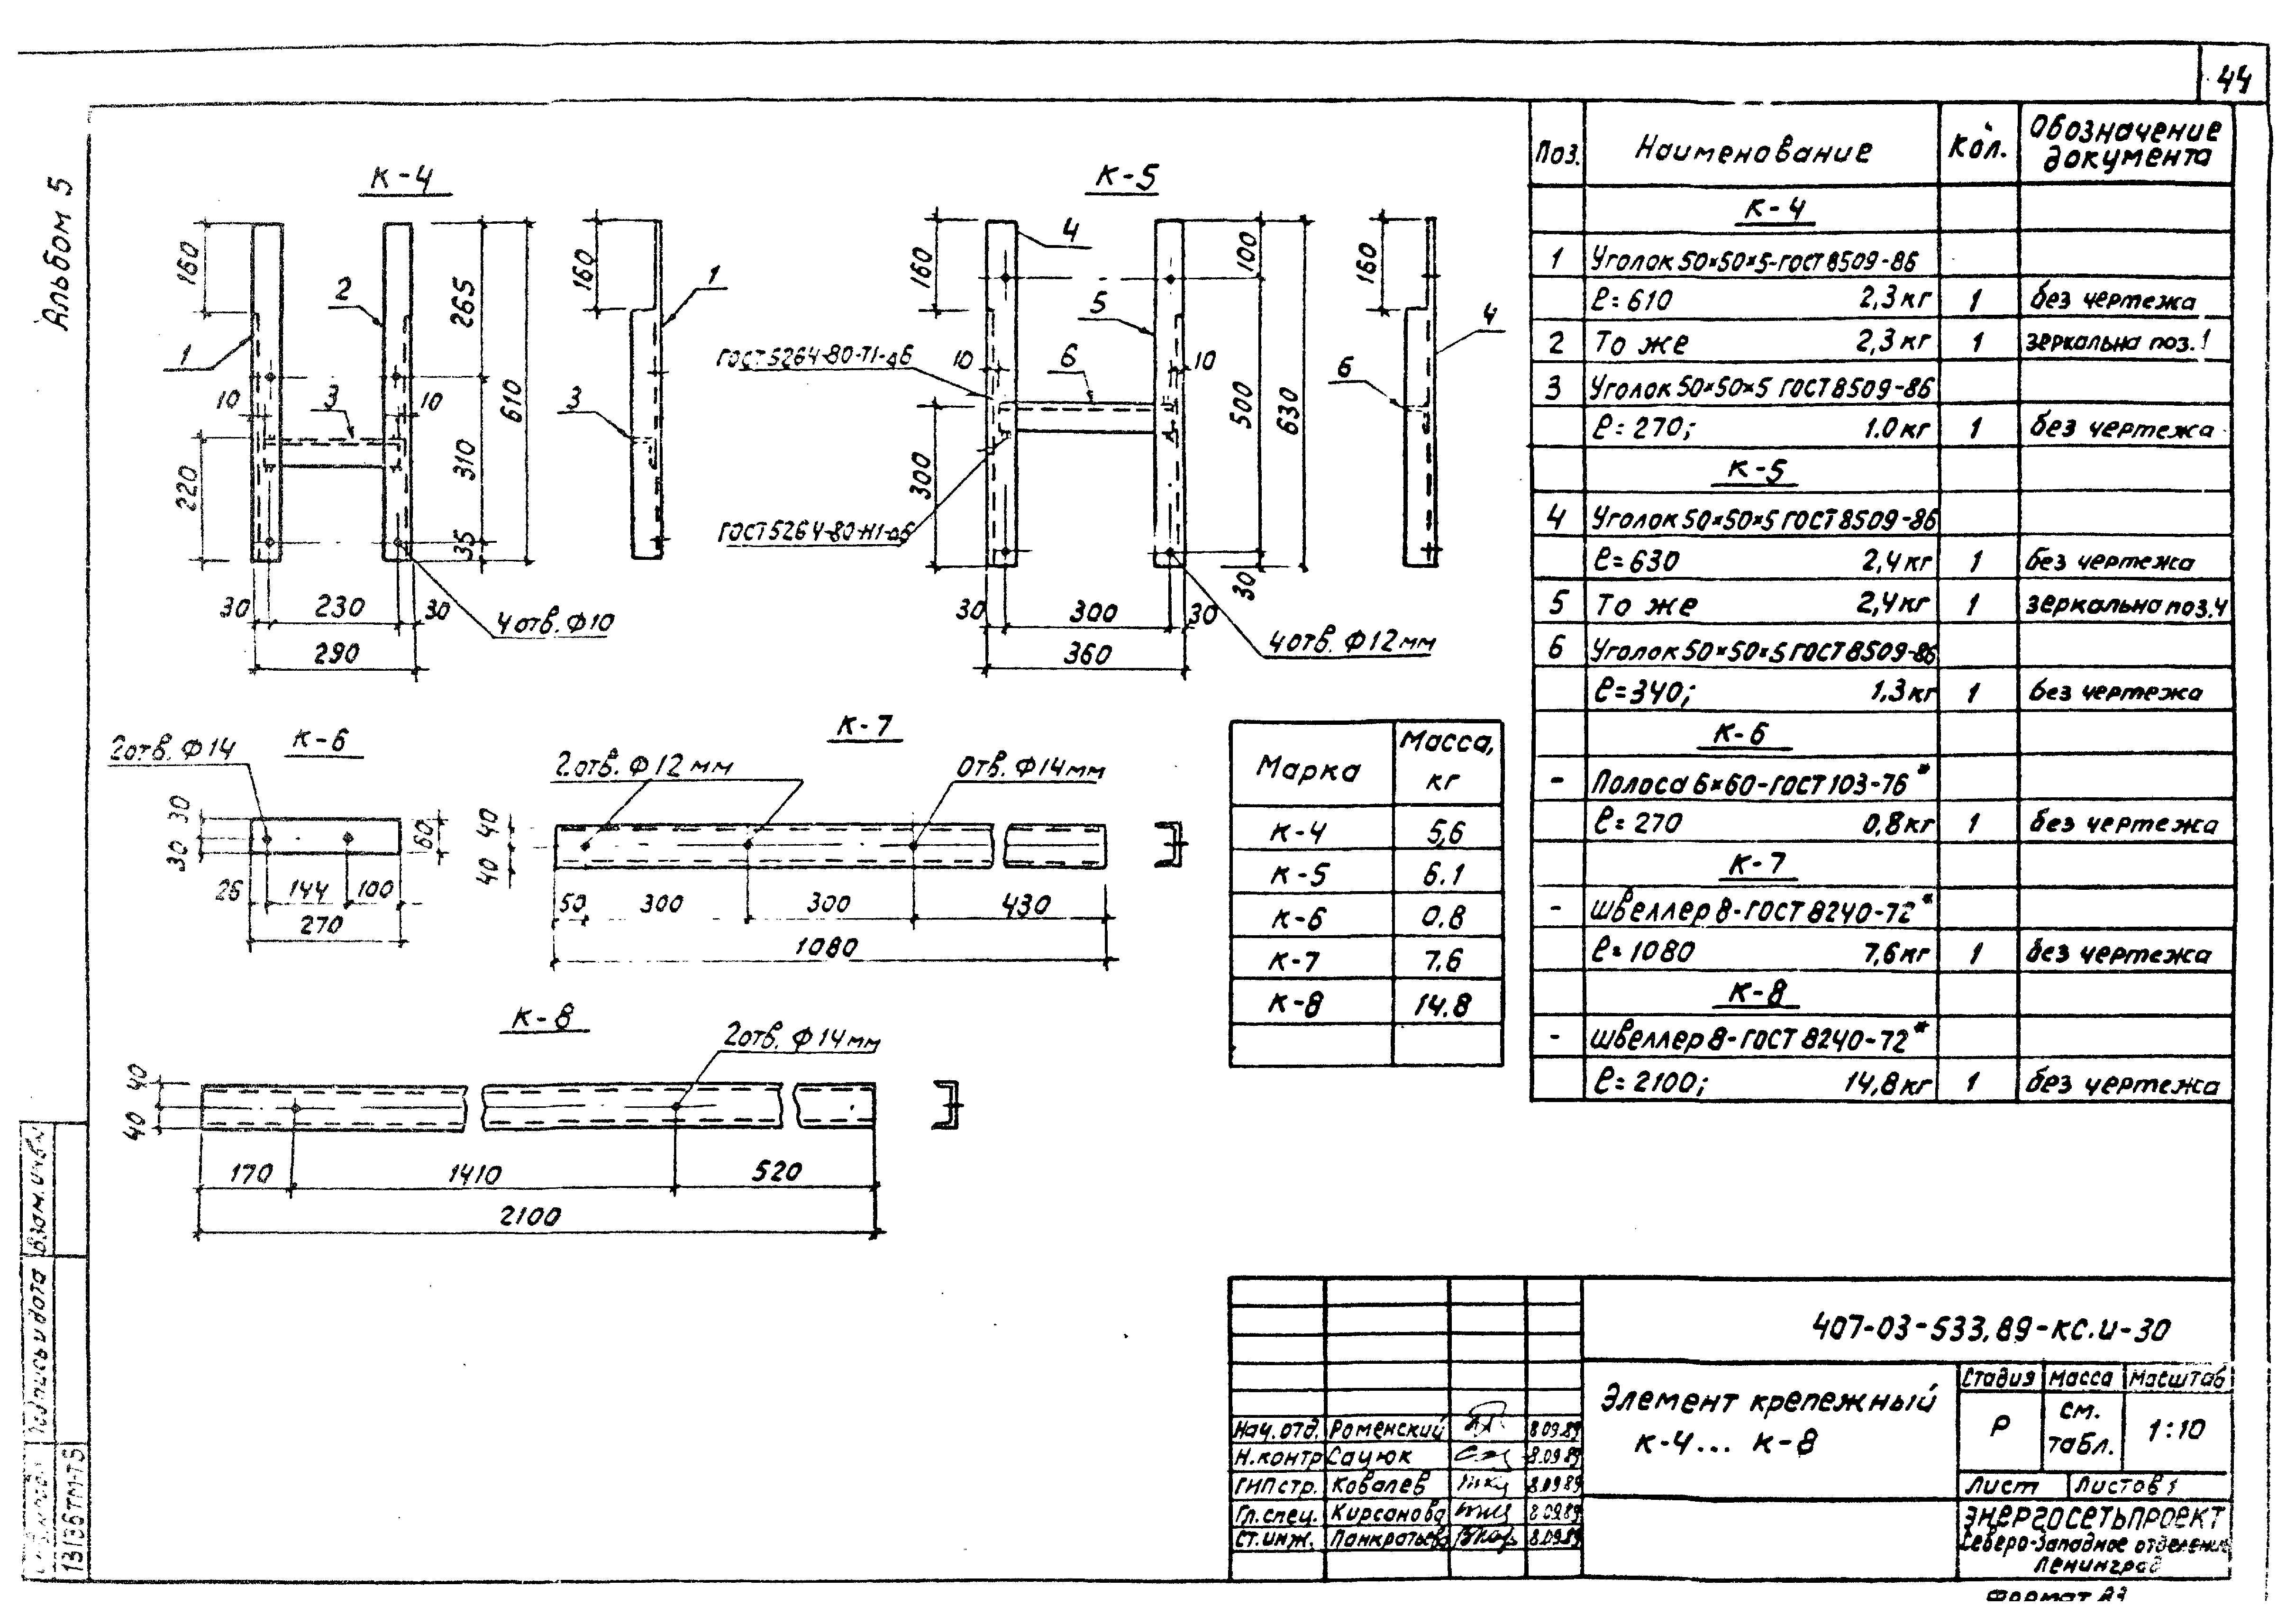 44
Альбом 5
К-4
160
1
2
3
10
10
220
265
310
35
610
30
230
30
290
4 отв. Ф10
160
1
3
К-5
160
4
5
6
ГОСТ 5264-80-Т1-△6
10
10
300
ГОСТ 5264-80-Н1-△6
100
500
630
30
30
300
30
360
4 отв. Ф12 мм
160
4
6
К-6
2 отв. Ф14
30
30
60
26
144
100
270
К-7
2 отв. Ф12 мм
Отв. Ф14мм
40
40
50
300
300
430
1080
К-8
2 отв. Ф14 мм
40
40
170
1410
520
2100
Марка
Масса, кг
К-4 5,6
К-5 6.1
К-6 0.8
К-7 7.6
К-8 14.8
Поз. Наименование Кол. Обозначение документа
К-4
1 Уголок 50×50×5-ГОСТ 8509-86
ℓ=610 2,3 кг 1 без чертежа
2 То же 2,3 кг 1 зеркальна поз. 1
3 Уголок 50×50×5 ГОСТ 8509-86
ℓ=270; 1.0 кг 1 без чертежа
К-5
4 Уголок 50×50×5 ГОСТ 8509-86
ℓ=630 2,4 кг 1 без чертежа
5 То же 2,4 кг 1 зеркальна поз. 4
6 Уголок 50×50×5 ГОСТ 8509-86
ℓ=340; 1,3 кг 1 без чертежа
К-6
- Полоса 6×60-ГОСТ 103-76*
ℓ=270 0,8 кг 1 без чертежа
К-7
- швеллер 8-ГОСТ 8240-72*
ℓ=1080 7,6 кг 1 без чертежа
К-8
- швеллер 8-ГОСТ 8240-72*
ℓ=2100; 14,8 кг 1 без чертежа
407-03-533.89-КС.И-30
Элемент крепежный
К-4... К-8
Стадия Масса Масштаб
Р см. табл. 1:10
Лист Листов 1
ЭНЕРГОСЕТЬПРОЕКТ
Северо-Западное отделение
Ленинград
Нач. отд. Роменский 8.09.89
Н.контр Сацюк 8.09.89
ГИП стр. Ковалев 8.09.89
Гл. спец. Кирсанова 8.09.89
Ст. инж. Панкратьева 8.09.89
Взам. инв. №
Подпись и дата
13136ТМ-Т5
Формат А3